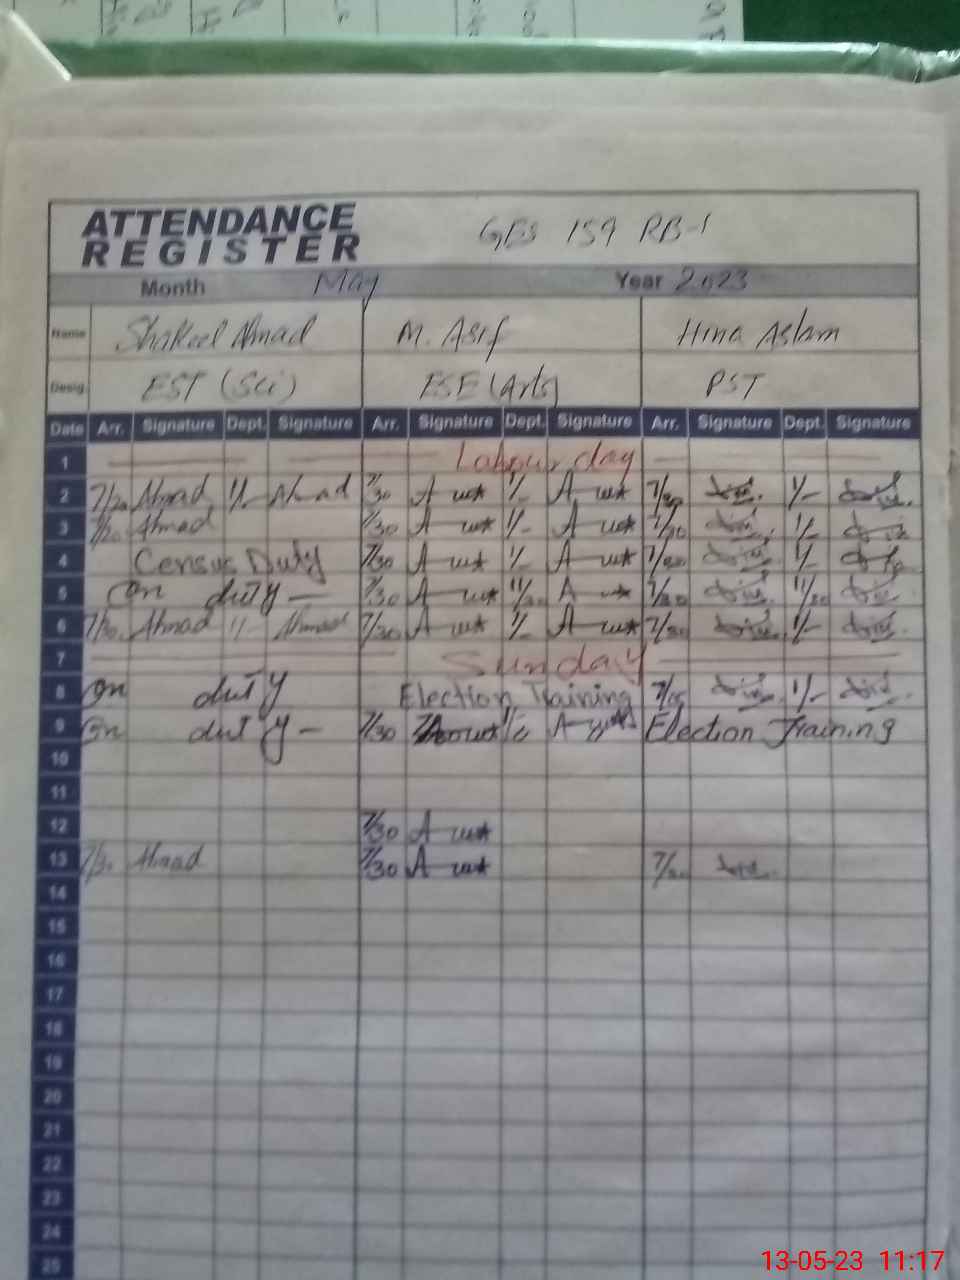 ATTENDANCE
REGISTER
GES 159 RB-1
Month May Year 2023
Name Shakeel Ahmad M. Asif Hina Aslam
Desig. EST (Sci) ESE (Arts) PST
Date Arr. Signature Dept. Signature Arr. Signature Dept. Signature Arr. Signature Dept. Signature
1 Labour day
2 7/30 Ahmad 1/- Ahmad 7/30 A 1/- A 7/30 1/-
3 7/30 Ahmad 7/30 A 1/- A 7/30 1/-
4 Census Duty 7/30 A 1/- A 7/30 1/-
5 On duty 7/30 A 11/30 A 7/30 11/30
6 7/30 Ahmad 1/- Ahmad 7/30 A 1/- A 7/30 1/-
7 Sunday
8 On duty Election Training 1/-
9 On duty 7/30 A Election Training
10
11
12 7/30 A
13 7/30 Ahmad 7/30 A 7/30
14
15
16
17
18
19
20
21
22
23
24
25
13-05-23 11:17